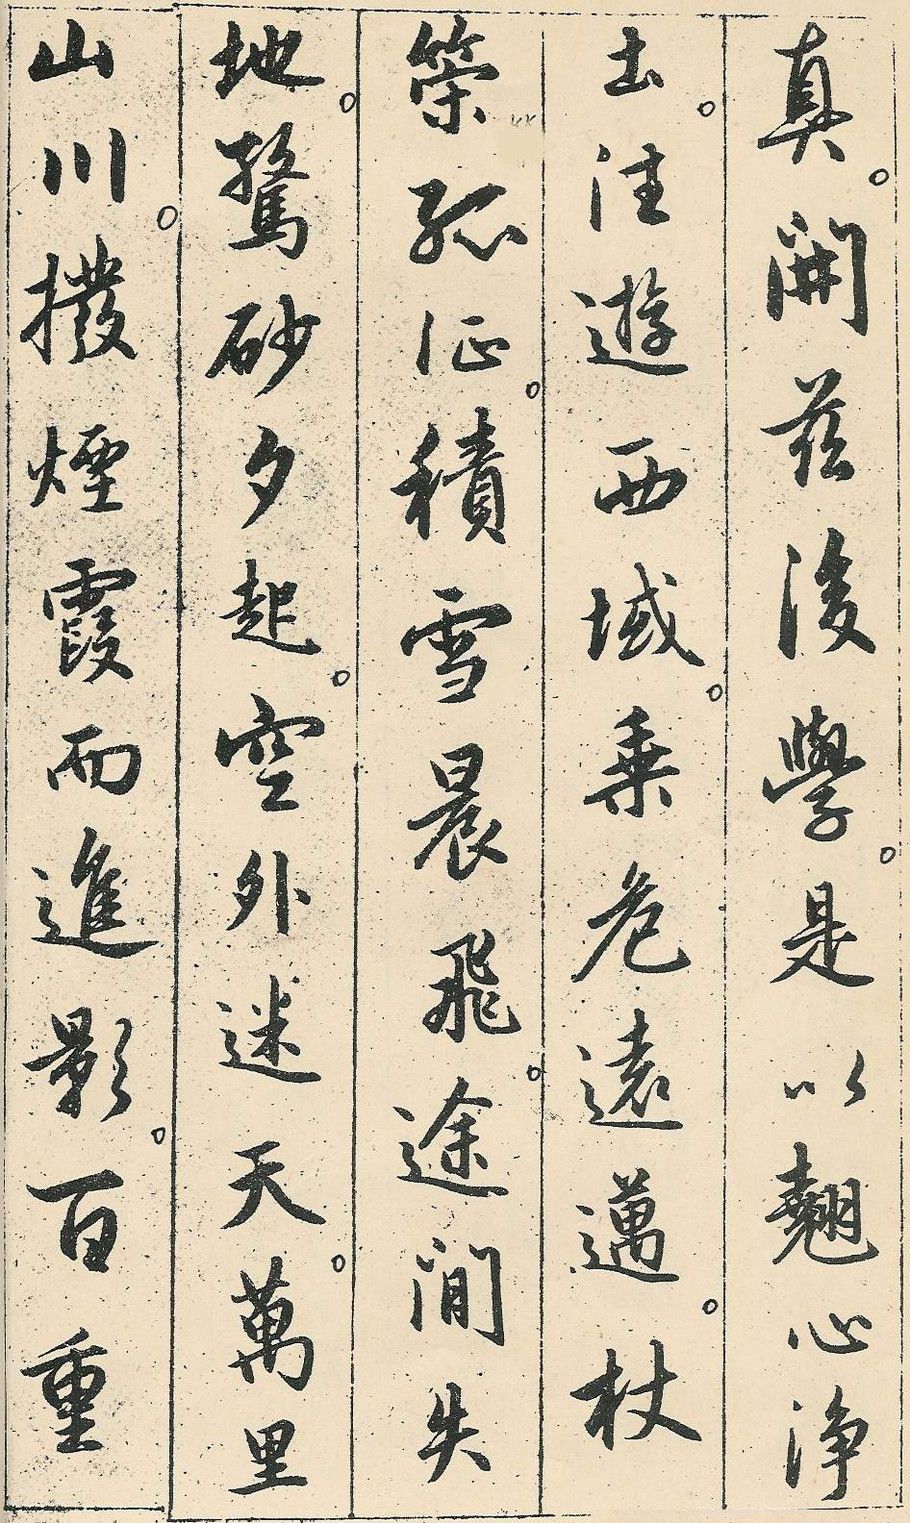 真。開茲後學。是以翹心淨
土。法遊西域。乗危遠邁。杖
策孤征。積雪晨飛。途間失
地。驚砂夕起。空外迷天。萬里
山川。撥煙霞而進影。百重